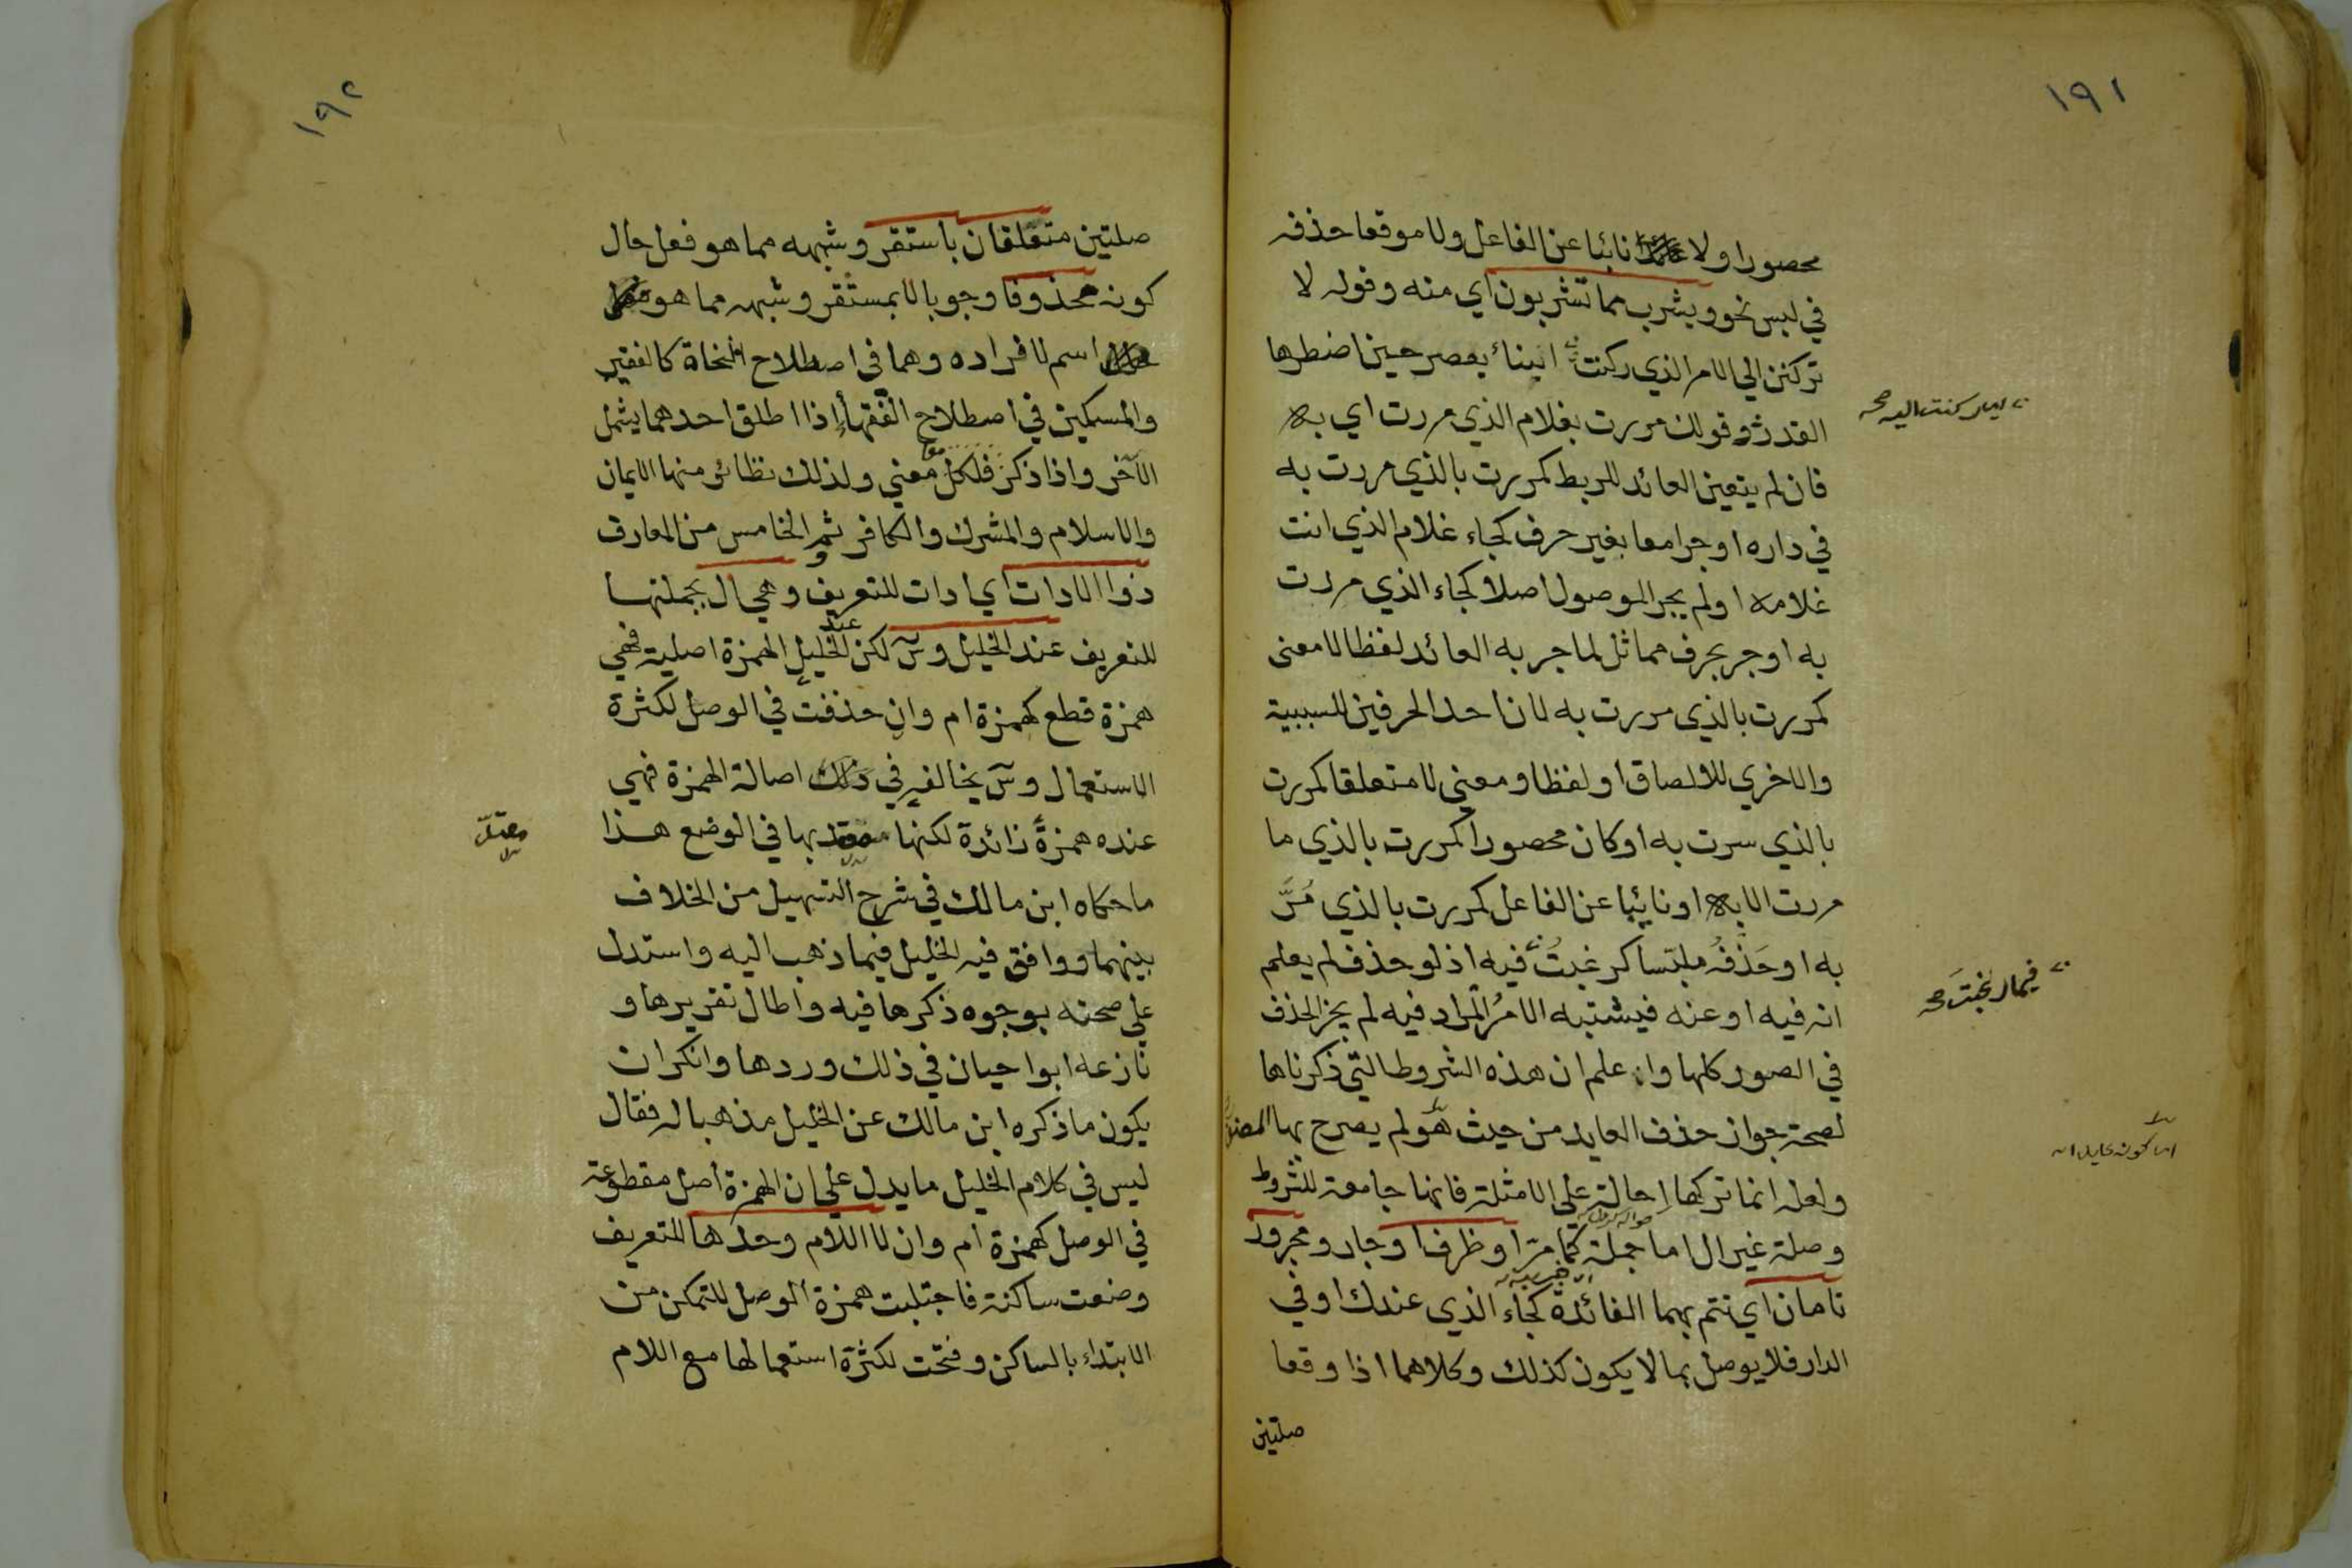 ١٩١
محصورا ولا نائبا عن الفاعل ولا موقعا حذفه
في لبس نحو ويشرب مما تشربون اي منه وقوله لا
تركنن الي الامر الذي ركنت ابناء يعصر حين اضطرها
القدر وقولك مررت بغلام الذي مررت اي به
اي ركنت اليه صح
فان لم يتعين العائد للربط كمررت بالذي مررت به
في داره او جرا معا بغير حرف كجاء غلام الذي انت
غلامه او لم يجر الموصول اصلا كجاء الذي مررت
به او جر بحرف مماثل لما جر به العائد لفظا لا معنى
كمررت بالذي مررت به لان احد الحرفين للسببية
والاخري للالصاق او لفظا ومعني لا متعلقا كمررت
بالذي سرت به او كان محصورا كمررت بالذي ما
مررت الا به او نائبا عن الفاعل كمررت بالذي مُرَّ
به او حَذفُه ملبّسا كرغبتُ فيه اذ لو حذف لم يعلم
فيما رغبتَ صح
انه فيه او عنه فيشتبه الامرُ المراد فيه لم يجز الحذف
في الصور كلها واعلم ان هذه الشروط التي ذكرناها
لصحة جواز حذف العايد من حيث هو لم يصرح بها المصنف
ولعله انما تركها اِحالة علي الامثلة فانها جامعة للشروط
وصلة غير ال اما جملة كما مرّ او ظرف او جار ومجرور
خبرية
تامان اي تتم بهما الفائدة كجاء الذي عندك او في
الدار فلا يوصل بما لا يكون كذلك وكلاهما اذا وقعا
صلتين
١٩٢
صلتين متعلقان باستقر وشبهه مما هو فعل حال
كونه محذوفا وجوبا لا بمستقر وشبهه مما هو
اسم لافراده وهما في اصطلاح النحاة كالفقير
والمسكين في اصطلاح الفقهاء اذا اطلق احدهما يشمل
الآخر واذا ذكر فلكل معني ولذلك نظائر منها الايمان
والاسلام والمشرك والكافر ثم الخامس من المعارف
ذو الادات اي ادات للتعريف وهي ال بجملتها
للتعريف عند الخليل وسٓ لكن عند الخليل الهمزة اصلية فهي
همزة قطع كهمزة ام وان حذفت في الوصل لكثرة
الاستعمال وسٓ يخالفه في ذلك اصالة الهمزة فهي
عنده همزةً زائدة لكنها معتد بها في الوضع هذا
معتدّ
ما حكاه ابن مالك في شرح التسهيل من الخلاف
بينهما ووافق فيه الخليل فيما ذهب اليه واستدل
علي صحته بوجوه ذكرها فيه واطال تقريرها و
نازعه ابوا حيان في ذلك وردها وانكر ان
يكون ما ذكره ابن مالك عن الخليل مذهبا له فقال
ليس في كلام الخليل ما يدل علي ان الهمزة أصل مقطوعة
في الوصل كهمزة ام وان لا اللام وحدها للتعريف
وضعت ساكنة فاجتلبت همزة الوصل للتمكن من
الابتداء بالساكن وفتحت لكثرة استعمالها مع اللام